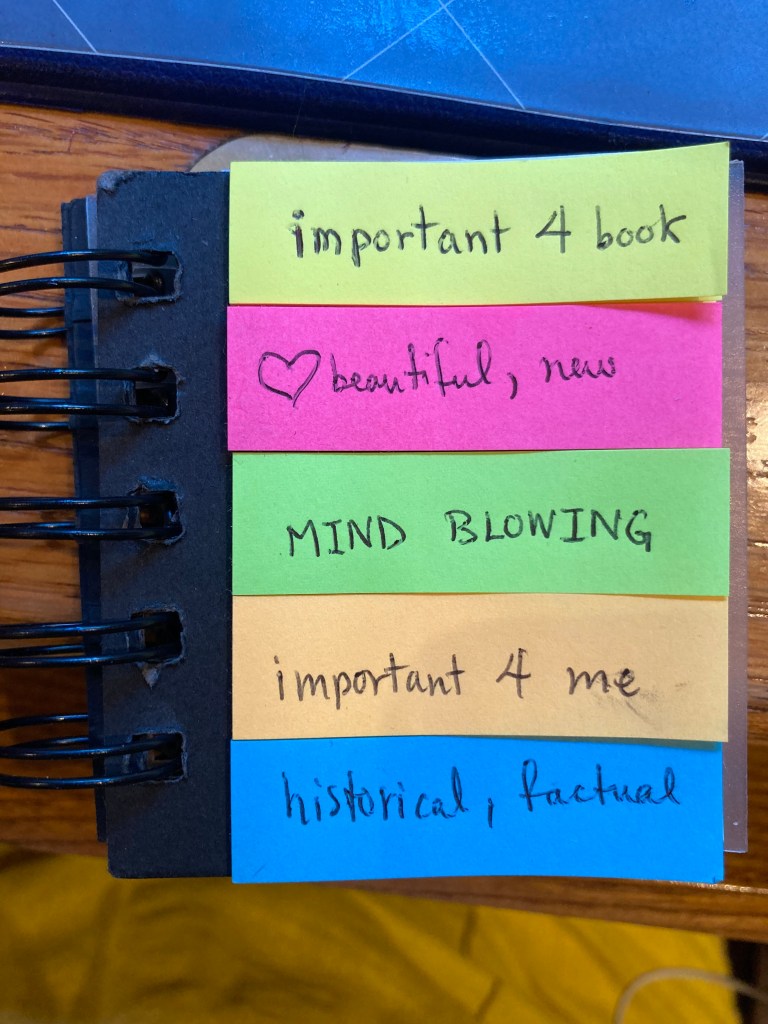 important 4 book
♡ beautiful, new
MIND BLOWING
important 4 me
historical, factual